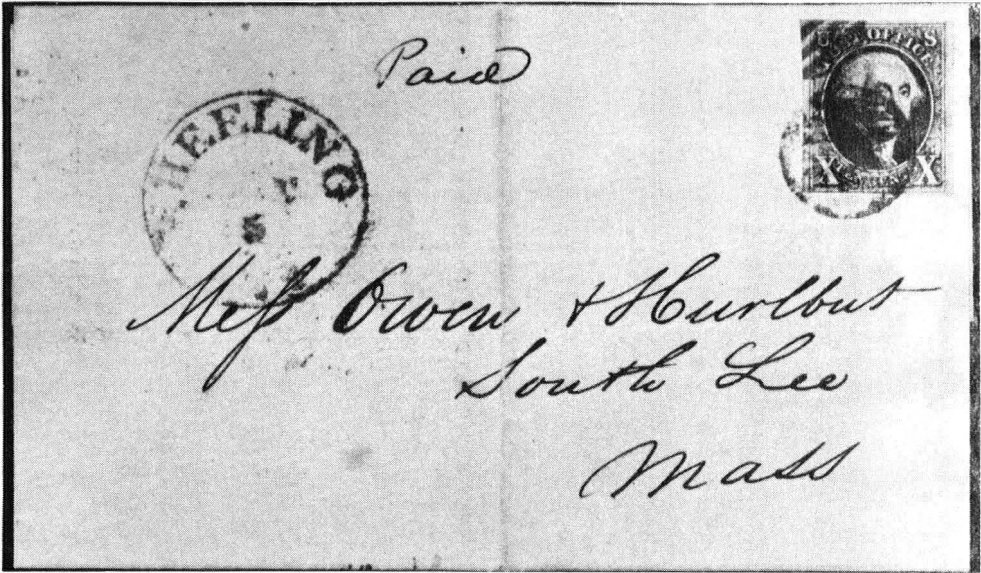 Paid
POST OFFICE
X X
WHEELING
5
Mess Owen & Hurlbut
South Lee
Mass